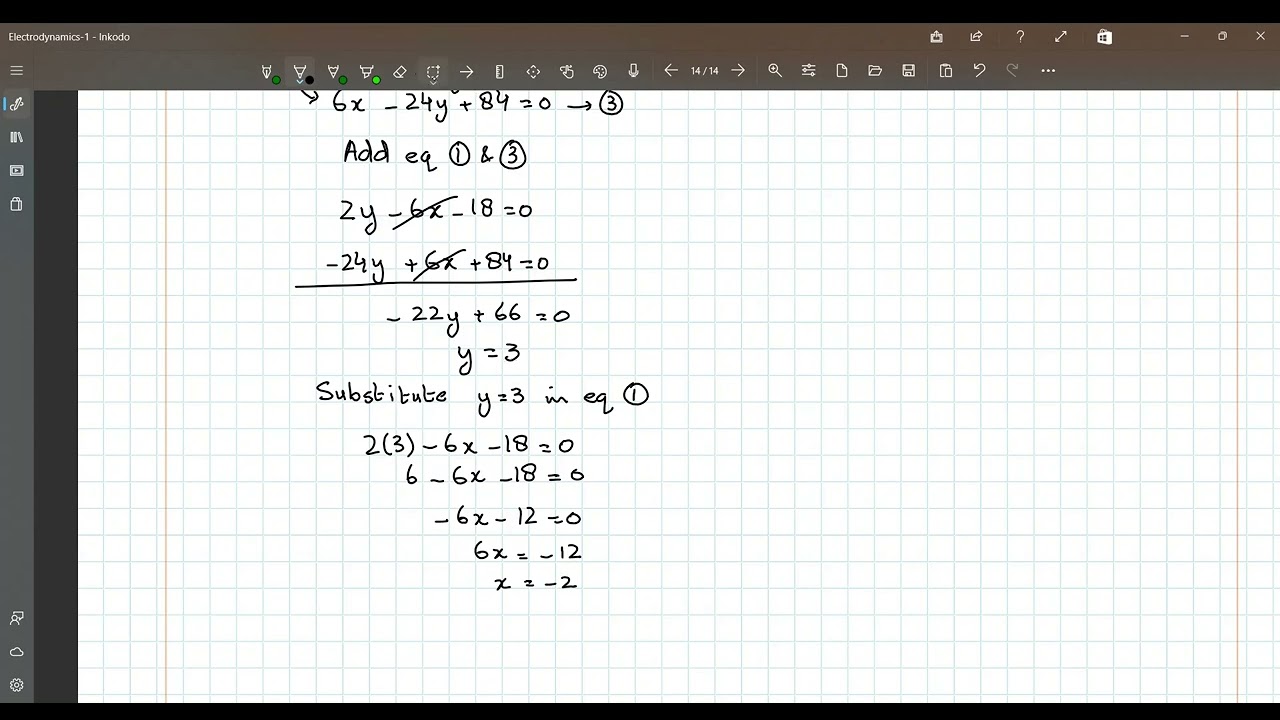 Electrodynamics-1 - Inkodo
14/14
6x - 24y + 84 = 0 → ③
Add eq ① & ③
2y - 6x - 18 = 0
-24y + 6x + 84 = 0
- 22y + 66 = 0
y = 3
Substitute y = 3 in eq ①
2(3) - 6x - 18 = 0
6 - 6x - 18 = 0
- 6x - 12 = 0
6x = - 12
x = - 2